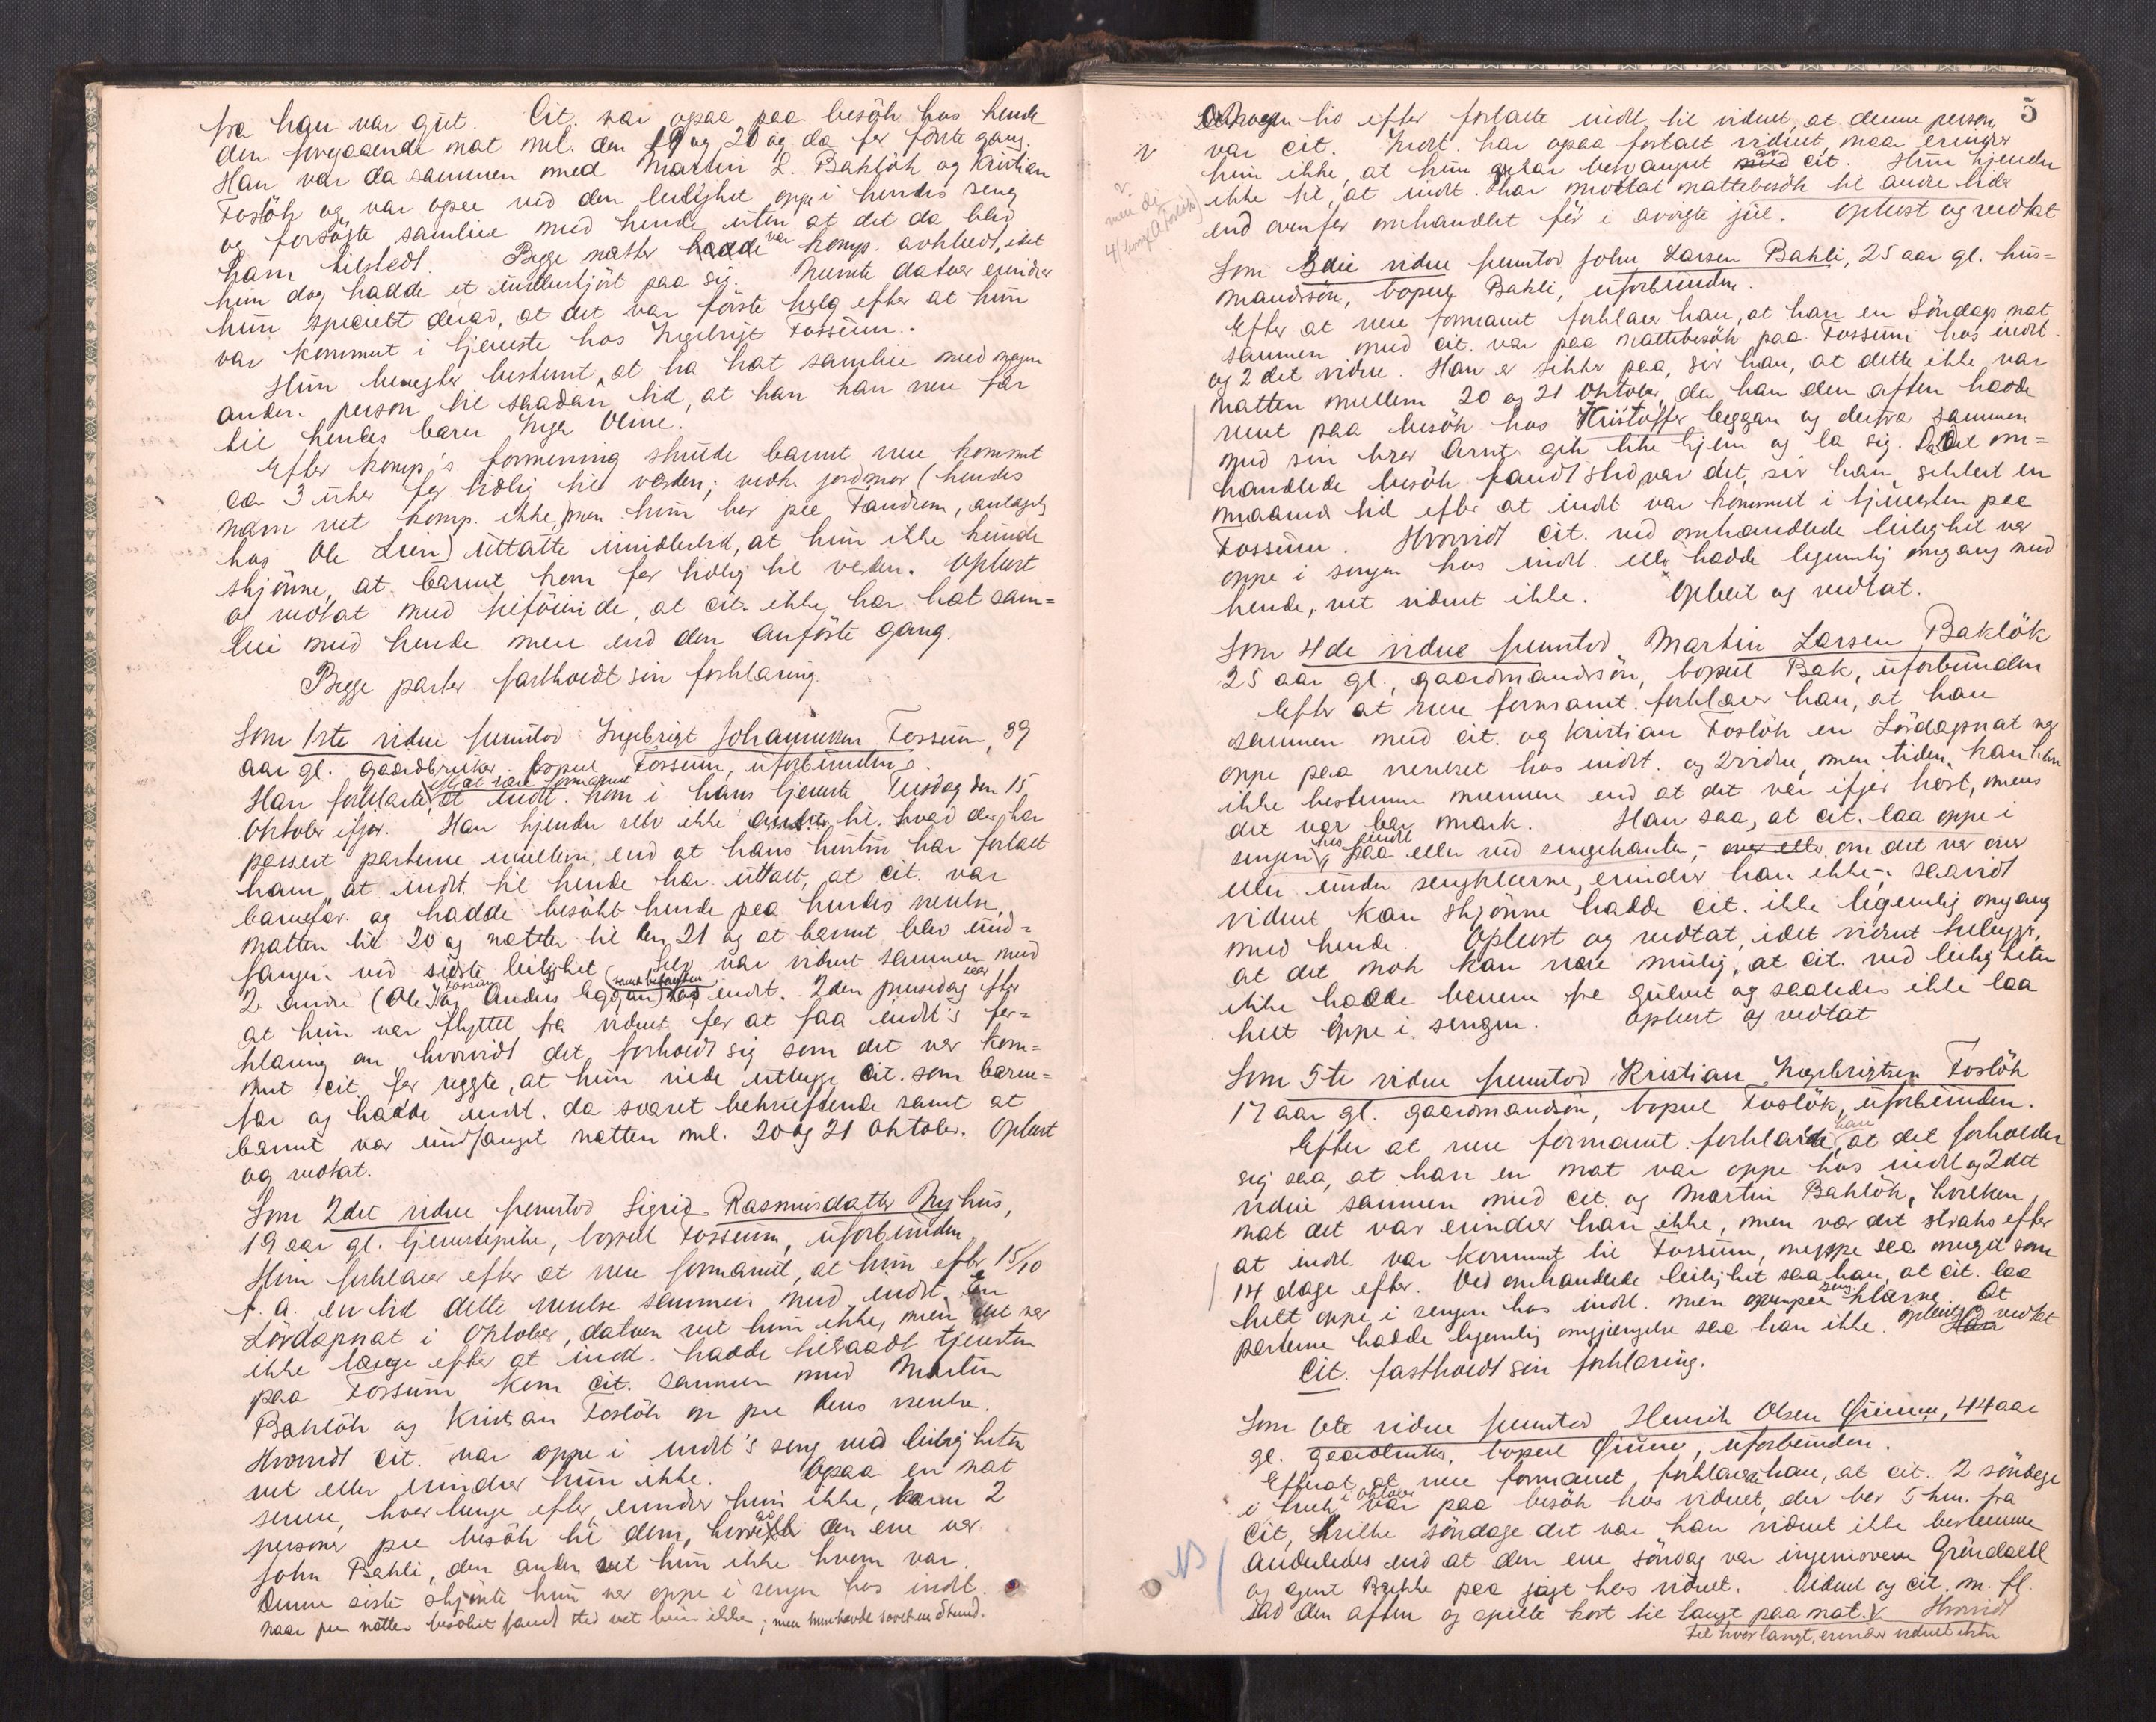 fra han var gut. Cit. var ogsaa paa besøk hos hende
den foregaaende nat mel. den 19 og 20 og da for første gang.
Han var da sammen med Martin L. Bakløk og Kristian
Fosløk og var ogsaa ved den leilighet oppe i hendes seng
og forsøgte samleie med hende uten at det da blev
ham tilstedt. Begge nætter var komp. avklædt, idet
hun dog hadde et underskjört paa sig. Nævnte datoer erindrer
hun specielt derav, at det var første helg efter at hun
var kommet i tjeneste hos Ingebrigt Fossum.
Hun benegter bestemt, at ha hat samleie med nogen
anden person til saadan tid, at han kan være far
til hendes barn Inga Oline.
Efter komp's formening skulde barnet være kommet
ca 3 uker for tidlig til verden; vedk. jordmor (hendes
navn vet komp. ikke, men hun bor paa Fandrem, antagelig
hos Ole Lien) uttalte imidlertid, at hun ikke kunde
skjønne, at barnet kom for tidlig til verden. Oplæst
og vedtat med tilføiende, at cit. ikke har hat sam=
leie med hende mere end den anførte gang.
Begge parter fastholdt sin forklaring.
Som 1ste vidne fremstod Ingebrigt Johannessen Fossum, 39
aar gl. gaardbruker, bopæl Fossum, uforbunden.
efter at være formanet
Han forklarte, at indkl. kom i hans tjeneste Tirsdag den 15
Oktober ifjor. Han kjender selv ikke andet til hvad der har
passert parterne imellem, end at hans hustru har fortalt
ham, at indkl. til hende har uttalt, at cit. var
barnefar og hadde besøkt hende paa hendes værelse
natten til 20 og natten til den 21 og at barnet blev und=
fanget ved sidste leilighet. Selv var vidnet sammen med
2 andre (Ole J. Fossum og Anders Eggan) hos indkl. 2den pinsedag efter
at hun var flyttet fra vidnet for at faa indkl's for=
klaring om hvorvidt det forholdt sig som det var kom=
met cit. for rygte, at hun vilde utlegge cit. som barne=
far og hadde indkl. da svaret bekræftende samt at
barnet var undfanget natten mel. 20 og 21 oktober. Oplæst
og vedtat.
Som 2det vidne fremstod Sigrid Rasmusdatter Nyhus,
19 aar gl. tjenestepike, bopæl Fossum, uforbunden
Hun forklarer efter at være formanet, at hun efter 15/10
f. a. en tid delte værelse sammen med indkl. En
Lørdagsnat i Oktober, datoen vet hun ikke, men det var
ikke længe efter at indkl. hadde tiltraadt tjenesten
paa Fossum kom cit. sammen med Martin
Bakløk og Kristian Fosløk op paa deres værelse.
Hvorvidt cit. var oppe i indkl's seng ved leiligheten
vet eller erindrer hun ikke. Ogsaa en nat
senere, hvor længe efter, erindrer hun ikke, kom 2
personer paa besøk til dem, hvorav den ene var
John Bahli, den anden vet hun ikke hvem var.
Denne siste skjønte hun var oppe i sengen hos indkl.
Naar paa natten besøket fandt sted vet hun ikke; men hun havde sovet en stund.
5
Nogen tid efter fortalte indkl. til vidnet, at denne person
var cit. Indkl. har ogsaa fortalt vidnet, maa erindrer
hun ikke, at hun var besvangret av cit. Hun kjender
ikke til, at indkl. har mottat nattebesøk til andre tider
end ovenfor omhandlet før i avvigte jul. Oplæst og vedtat
Som 3die vidne fremstod John Larsen Bahli, 25 aar gl. hus=
mandssøn, bopæl Bahli, uforbunden.
Efter at være formanet forklarer han, at han en Søndags nat
sammen med cit. var paa nattebesøk paa Fossum hos indkl.
og 2det vidne. Han er sikker paa, sir han, at dette ikke var
natten mellem 20 og 21 Oktober, da han den aften hadde
været paa besøk hos Kristoffer Eggan og derfra sammen
med sin bror Arnt gik like hjem og la sig. Da det om=
handlede besøk fandt sted, var det, sir han, sikkert en
maaned tid efter at indkl. var kommet i tjenesten paa
Fossum. Hvorvidt cit. ved omhandlede leilighet var
oppe i sengen hos indkl. eller hadde legemlig omgang med
hende, vet vidnet ikke. Oplæst og vedtat.
Som 4de vidne fremstod Martin Larsen Bakløk
25 aar gl., gaardmandssøn, bopæl Bak, uforbunden
Efter at være formanet forklarer han, at han
sammen med cit. og Kristian Fosløk en Lørdagsnat var
oppe paa værelset hos indkl. og 2 vidne, men tiden kan han
ikke bestemme nærmere end at det var ifjor høst, mens
det var bar mark. Han saa, at cit. laa oppe i
sengen hos indkl. paa eller ved sengekanten, om det var over
eller under sengklærne, erindrer han ikke; saavidt
vidnet kan skjønne hadde cit. ikke legemlig omgang
med hende. Oplæst og vedtat, idet vidnet tillægger,
at det nok kan være mulig, at cit. ved leiligheten
ikke hadde benene fra gulvet og saaledes ikke laa
helt oppe i sengen. Oplæst og vedtat
Som 5te vidne fremstod Kristian Ingebrigtsen Fosløk
17 aar gl. gaardmandsøn, bopæl Fosløk, uforbunden.
Efter at være formanet forklarte han, at det forholder
sig saa, at han en nat var oppe hos indkl. og 2det
vidne sammen med cit. og Martin Bakløk, hvilken
nat det var erindrer han ikke, men var det straks efter
at indkl. var kommet til Fossum, neppe saa meget som
14 dage efter. Ved omhandlede leilighet saa han, at cit. laa
helt oppe i sengen hos indkl. men ovenpaa sengklærne. At
parterne hadde legemlig omgjængelse saa han ikke. Oplæst og vedtat
Cit. fastholdt sin forklaring.
Som 6te vidne fremstod Henrik Olsen Grinen, 44 aar
gl. gaardbruker, bopæl, uforbunden.
Efterat at være formanet, forklarer han, at cit. 2 søndage
i træk i oktober var paa besøk hos vidnet, der bor 5 km. fra
cit, hvilke søndage det var kan vidnet ikke bestemme
anderledes end at den ene søndag var ingeniørene Gründahl
og agent Brekke paa jagt hos vidnet. Vidnet og cit. m. fl.
sad den aften og spilte kort til langt paa nat. Hvorvidt
til hvor langt, erindrer vidnet ikke